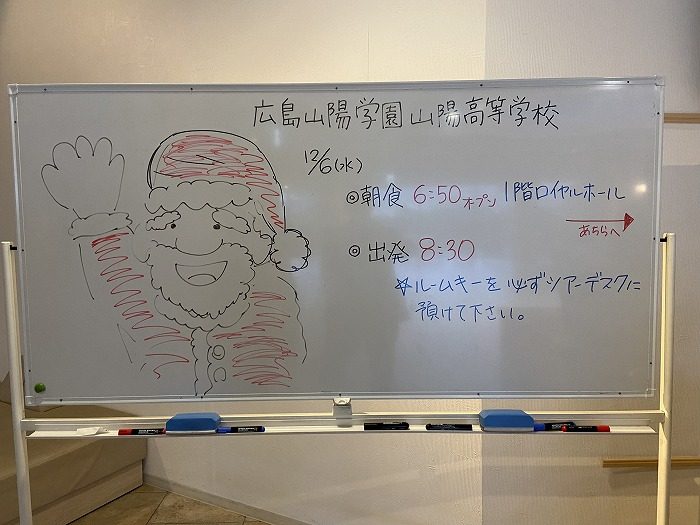 広島山陽学園 山陽高等学校
12/6(水)
◎朝食 6:50オープン 1階ロイヤルホール
あちらへ
◎出発 8:30
☆ルームキーを必ずツアーデスクに
預けて下さい。